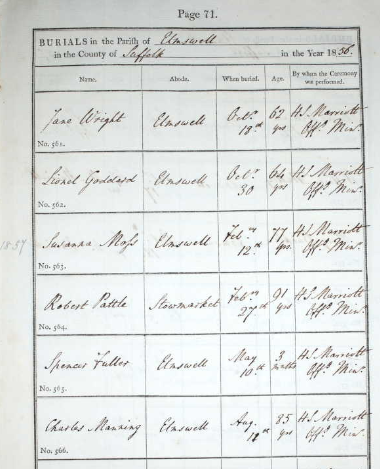 Page 71.
BURIALS in the Parish of Elmswell
in the County of Suffolk in the Year 1856.
Name. Abode. When buried. Age. By whom the Ceremony was performed.
Jane Wright Elmswell Octr. 62 H.S. Marriott
18th yrs Offg. Minr.
No. 561.
Lionel Goddard Elmswell Octr. 64 H.S. Marriott
30 yrs Offg. Minr.
No. 562.
1857
Susanna Moss Elmswell Feby. 77 H.S. Marriott
12th yrs. Offg. Minr.
No. 563.
Robert Pattle Stowmarket Feby. 91 H.S. Marriott
27th yrs Offg. Minr.
No. 564.
Spencer Fuller Elmswell May 3 H.S. Marriott
10th mnths Offg. Minr.
No. 565.
Charles Manning Elmswell Aug. 85 H.S. Marriott
yrs Offg. Minr.
No. 566.